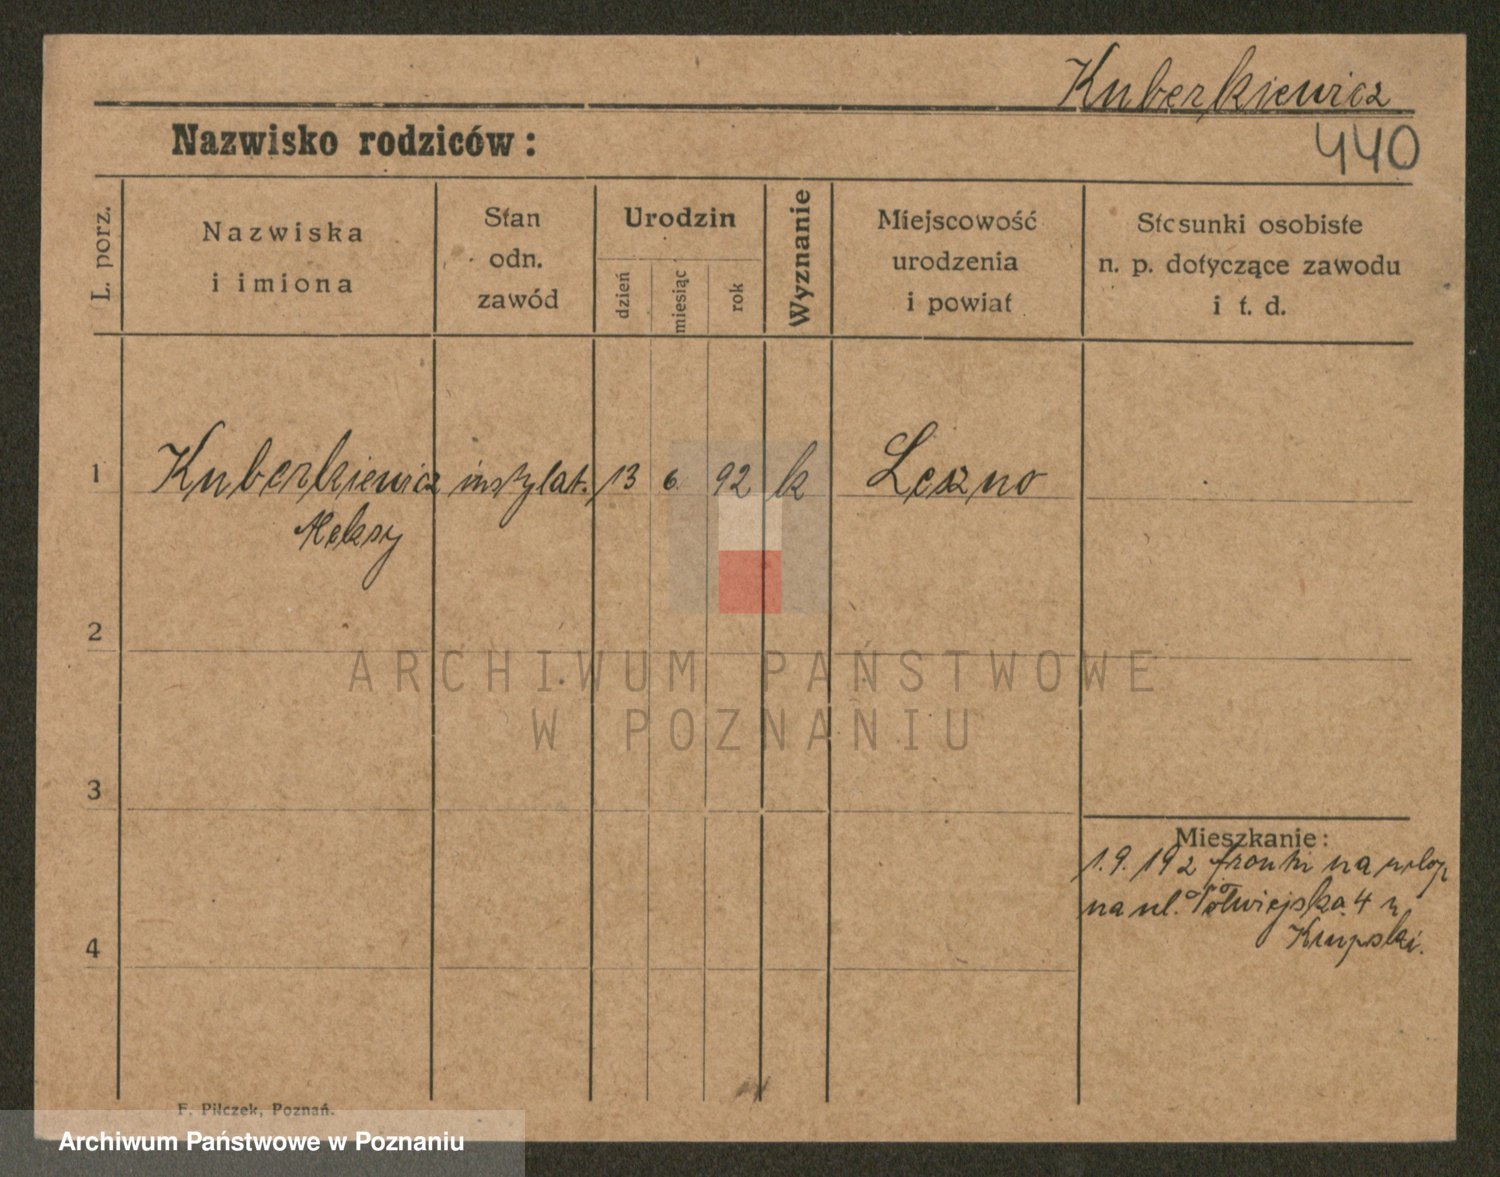 Kuberkiewicz
440
Nazwisko rodziców:
L. porz.
Nazwiska
i imiona
Stan
odn.
zawód
Urodzin
dzień
miesiąc
rok
Wyznanie
Miejscowość
urodzenia
i powiat
Stosunki osobiste
n. p. dotyczące zawodu
i t. d.
1 Kuberkiewicz instylat. 13 6. 92 k Leszno
Aleksy
2
ARCHIWUM PAŃSTWOWE
W POZNANIU
3
Mieszkanie:
1.9.192 frontu na urlop
na ul. Półwiejska 4 u
4
Krupski.
F. Pilczek, Poznań.
Archiwum Państwowe w Poznaniu